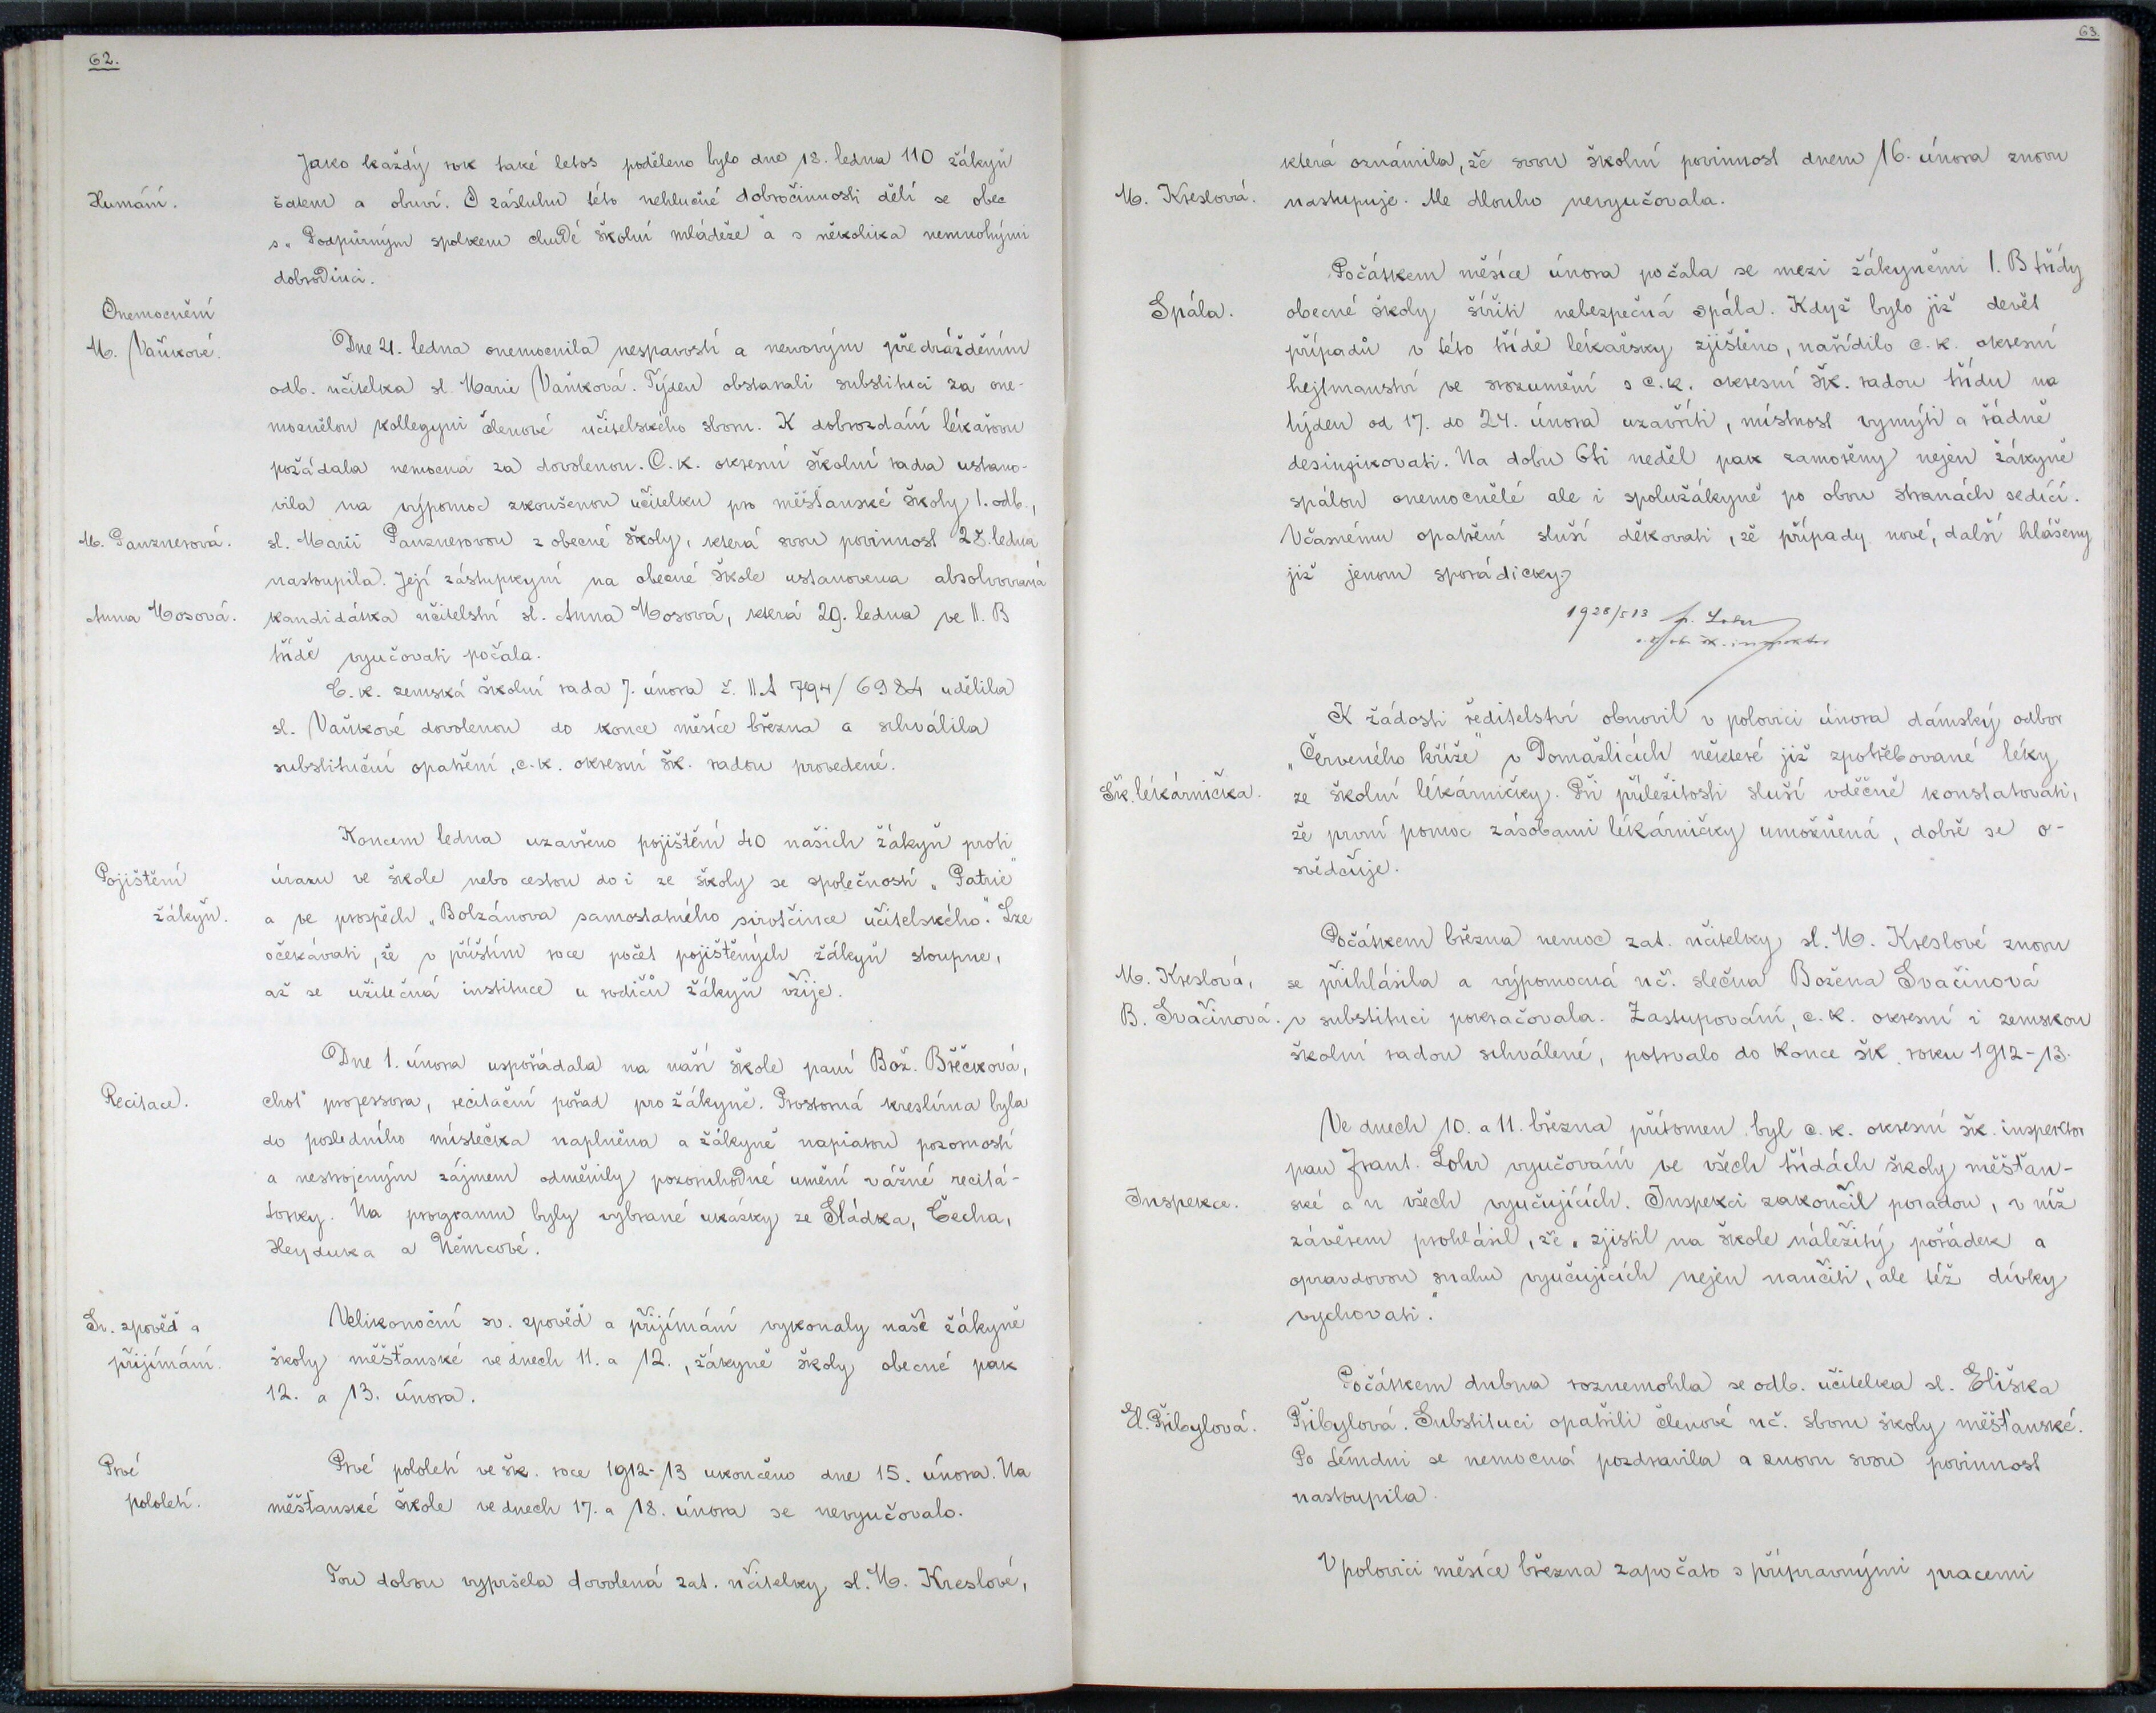 62.
Jako každý rok také letos poděleno bylo dne 18. ledna 110 žákyň
Humání.
šatem a obuví. O zásluhu této nehlučné dobročinnosti dělí se obec
s „Podpůrným spolkem chudé školní mládeže" a s několika nemnohými
dobrodinci.
Onemocnění
M. Vaňkové.
Dne 21. ledna onemocnila nespavostí a nervovým předrážděním
odb. učitelka sl. Marie Vaňková. Týden obstarali substituci za one-
mocnělou kollegyni členové učitelského sboru. K dobrozdání lékařovu
požádala nemocná za dovolenou. C. k. okresní školní rada ustano-
vila na výpomoc zkoušenou učitelku pro měšťanské školy I. odb.,
M. Pauznerová.
sl. Marii Pauznerovou z obecné školy, která svou povinnost 28. ledna
nastoupila. Její zástupkyní na obecné škole ustanovena absolvovaná
Anna Mosová.
kandidátka učitelství sl. Anna Mosová, která 29. ledna ve II. B
třídě vyučovati počala.
C. k. zemská školní rada 7. února č. II A 794/6984 udělila
sl. Vaňkové dovolenou do konce měsíce března a schválila
substituční opatření, c. k. okresní šk. radou provedené.
Koncem ledna uzavřeno pojištění 40 našich žákyň proti
Pojištění
žákyň.
úrazu ve škole nebo cestou do i ze školy se společností „Patrie"
a ve prospěch „Bolzánova samostatného sirotčince učitelského". Lze
očekávati, že v příštím roce počet pojištěných žákyň stoupne,
až se užitečná instituce u rodičů žákyň vžije.
Dne 1. února uspořádala na naší škole paní Bož. Břečková,
Recitace.
choť professora, recitační pořad pro žákyně. Prostorná kreslírna byla
do posledního místečka naplněna a žákyně napiatou pozorností
a nestrojeným zájmem odměnily pozoruhodné umění vážné recitá-
torky. Na programu byly vybrané ukázky ze Sládka, Čecha,
Heyduka a Němcové.
Sv. zpověď a
přijímání.
Velikonoční sv. zpověď a přijímání vykonaly naše žákyně
školy měšťanské ve dnech 11. a 12., žákyně školy obecné pak
12. a 13. února.
Prvé
pololetí.
Prvé pololetí ve šk. roce 1912-13 ukončeno dne 15. února. Na
měšťanské škole ve dnech 17. a 18. února se nevyučovalo.
Tou dobou vypršela dovolená zat. učitelky sl. M. Kreslové,
63.
která oznámila, že svou školní povinnost dnem 16. února znovu
M. Kreslová.
nastupuje. Ale dlouho nevyučovala.
Počátkem měsíce února počala se mezi žákyněmi I. B třídy
Spála.
obecné školy šířiti nebezpečná spála. Když bylo již devět
případů v této třídě lékařsky zjištěno, nařídilo c. k. okresní
hejtmanství ve srozumění s c. k. okresní šk. radou třídu na
týden od 17. do 24. února uzavříti, místnost vymýti a řádně
desinfikovati. Na dobu 6ti neděl pak zamořeny nejen žákyně
spálou onemocnělé ale i spolužákyně po obou stranách sedící.
Včasnému opatření sluší děkovati, že případy nové, další hlášeny
již jenom sporádicky.
1928/5 13 Fr. Lohr
c. k. okr. šk. inspektor
K žádosti ředitelství obnovil v polovici února dámský odbor
„Červeného kříže" v Domažlicích některé již zpotřebované léky
Šk. lékárnička.
ze školní lékárničky. Při příležitosti sluší vděčně konstatovati,
že první pomoc zásobami lékárničky umožněná, dobře se o-
svědčuje.
Počátkem března nemoc zat. učitelky sl. M. Kreslové znovu
M. Kreslová,
se přihlásila a výpomocná uč. slečna Božena Svačinová
B. Svačinová.
v substituci pokračovala. Zastupování, c. k. okresní i zemskou
školní radou schválené, potrvalo do konce šk. roku 1912-13.
Ve dnech 10. a 11. března přítomen byl c. k. okresní šk. inspektor
pan Frant. Lohr vyučování ve všech třídách školy měšťan-
Inspekce.
ské a u všech vyučujících. Inspekci zakončil poradou, v níž
závěrem prohlásil, že „zjistil na škole náležitý pořádek a
opravdovou snahu vyučujících nejen naučiti, ale též dívky
vychovati."
Počátkem dubna roznemohla se odb. učitelka sl. Eliška
El. Přibylová.
Přibylová. Substituci opatřili členové uč. sboru školy měšťanské.
Po témdni se nemocná pozdravila a znovu svou povinnost
nastoupila.
V polovici měsíce března započato s přípravnými pracemi